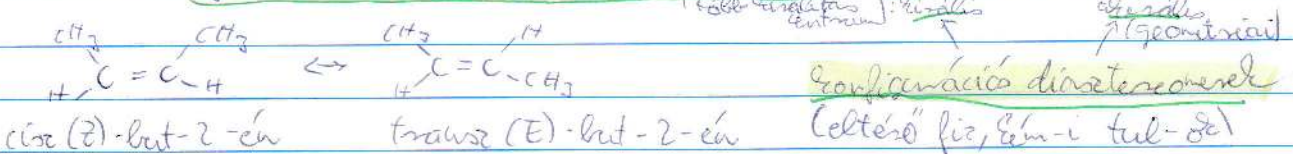 (több kiralitás centrum): királis akirális
(geometriai)
CH3 CH3 CH3 H
C = C ↔ C = C
H H H CH3
konfigurációs diasztereomerek
cisz (Z)-but-2-én transz (E)-but-2-én (eltérő fiz, kém-i tul-ok)